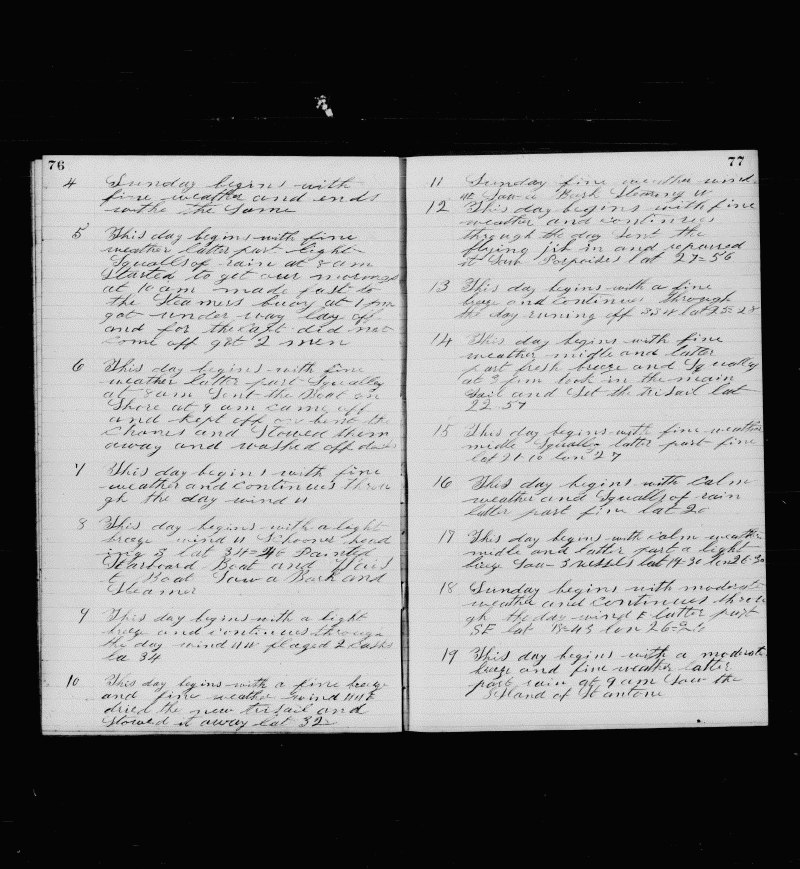 76
4 Sunday begins with
fine weather and ends
withe the Same
5 This day begins with fine
weather latter part light
Squalls of rain at 8 am
Started to get our moorings
at 10 am made fast to
the Steamers buoy at 1 pm
got under way lay off
and for the Capt did not
come off got 2 men
6 This day begins with fine
weather latter part Squally
at 8 am Sent the Boat on
Shore at 9 am came off
and kept off unbent the
Chanes and Stowed them
away and washed off
7 This day begins with fine
weather and Continues throu
gh the day wind
8 This day begins with a light
breeze wind Schooner head
ing lat 34=40 Painted
Starboard Boat and
Boat Saw a Bark and
Steamer
9 This day begins with a light
breeze and continues through
the day wind NW 2 Casks
la 34
10 This day begins with a fine breeze
and fine weather wind
dried the new trisail and
Stowed it away lat 32
77
11 Sunday fine weather wind
Saw a Bark Steering W
12 This day begins with fine
weather and continues
through the day Sent the
flying jib in and repaired
it Saw Porpoises lat 27=56
13 This day begins with a fine
breeze and Continues through
the day runing off SSW lat 25=28
14 This day begins with fine
weather midle and latter
part fresh breeze and Squally
at 3 pm took in the main
Sail and Set the trisail lat
22-57
15 This day begins with fine weather
midle Squally latter part fine
lat 21-10 lon 27
16 This day begins with Calm
weather and Squalls of rain
latter part fine lat 20
17 This day begins with calm weather
midle and latter part a light
breeze Saw 3 vessels lat 19-30 lon 26-30
18 Sunday begins with moderate
weather and Continues throu
gh the day wind E latter part
SE lat 18=43 lon 26=20
19 This day begins with a moderate
breeze and fine weather latter
part rain at 9 am Saw the
Island of St antone